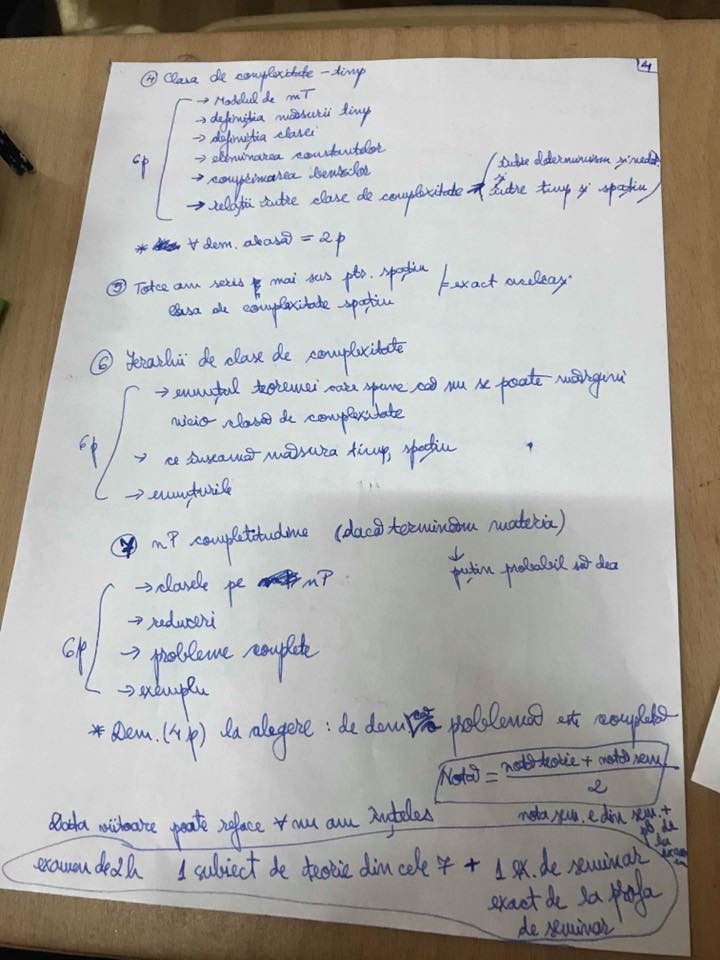 4
④ Clasa de complexitate - timp
→ Modelul de MT
→ definiția măsurii timp
→ definiția clasei
6p → eliminarea constantelor
→ comprimarea benzilor
→ relații între clase de complexitate → (între determinism și nedet.
între timp și spațiu)
* ∀ dem. aleasă = 2p
⑤ Tot ce am scris mai sus ptr. spațiu = exact aceleași
Clasa de complexitate spațiu
⑥ Ierarhii de clase de complexitate
→ enunțul teoremei care spune că nu se poate mărgini
nicio clasă de complexitate
6p
→ ce înseamnă măsura timp, spațiu
→ enunțurile
⑦ NP completitudine (dacă terminăm materia)
↓
puțin probabil să dea
→ clasele P NP
→ reduceri
6p → probleme complete
→ exemplu
* Dem. (4p) la alegere: de dem. că problema este completă
Nota = nota teorie + nota sem / 2
Data viitoare poate reface ∀ nu am înțeles
nota sem. e din sem. +
examen de 2h 1 subiect de teorie din cele 7 + 1 ex. de seminar
exact de la profa
de seminar